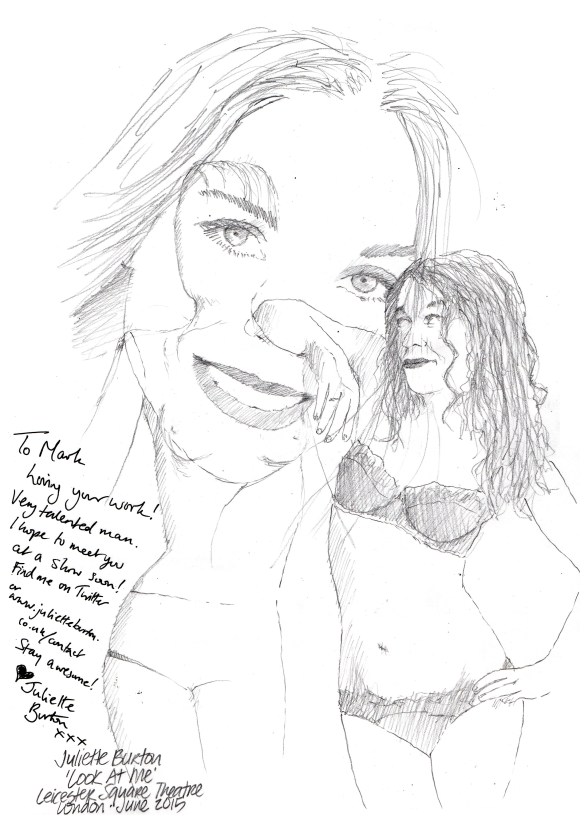 To Mark
Loving your work!
Very talented man.
I hope to meet you
at a show soon!
Find me on Twitter
or
www.julietteburton.
co.uk/contact
Stay awesome!
Juliette
Burton
xxx
Juliette Burton
'Look At Me'
Leicester Square Theatre
London June 2015